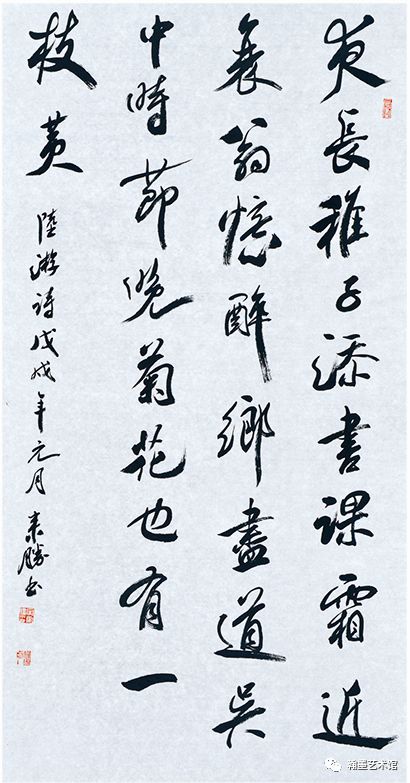 夜長稚子添書課霜近
衰翁憶醉鄉盡道吳
中時節晚菊花也有一
枝黃
陸游詩戊戌年元月来勝书
翰墨艺术馆